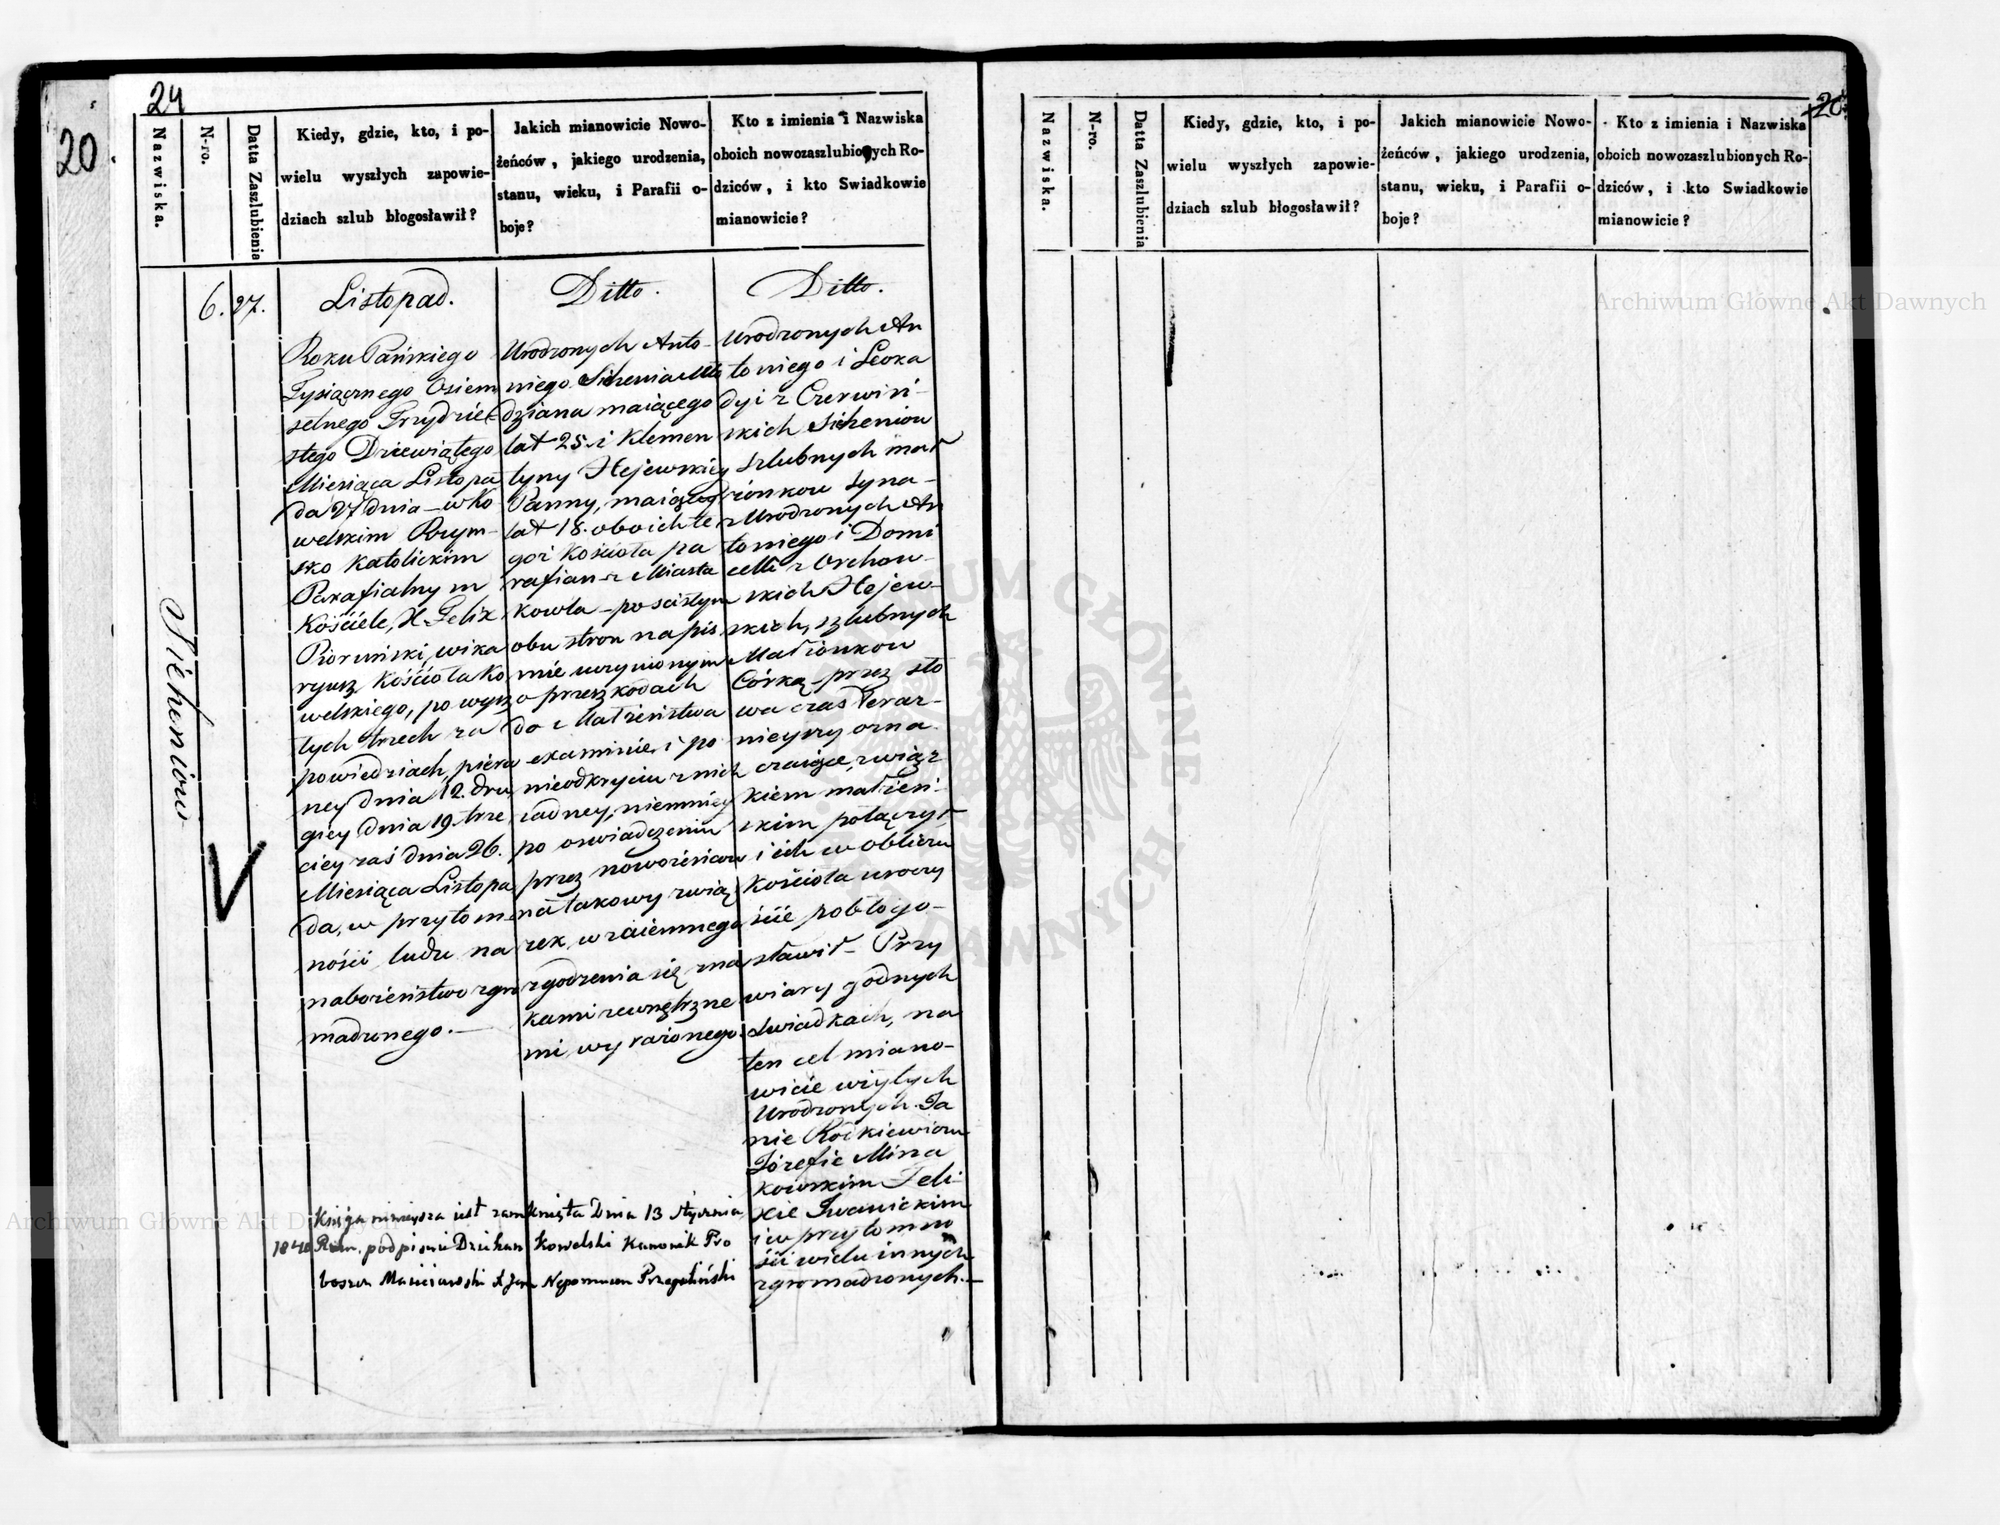 24
20
Nazwiska.
N-ro.
Datta Zaszlubienia
Kiedy, gdzie, kto, i po-
wielu wyszłych zapowie-
dziach szlub błogosławił?
Jakich mianowicie Nowo-
żeńców, jakiego urodzenia,
stanu, wieku, i Parafii o-
boje?
Kto z imienia i Nazwiska
oboich nowozaszlubionych Ro-
dziców, i kto Swiadkowie
mianowicie?
Sieheniów
6.
27.
Listopad.
Roku Pańskiego
Tysiącznego Osiem
setnego Trzydzie-
stego Dziewiątego
Miesiąca Listopa
da 27 dnia – w Ko
welskim Rzym-
sko Katolickim
Parafialnym
Kościele, X. Felix
Piorunski, wika
ryusz Kościoła Ko
welskiego, po wysz
łych trzech za
powiedziach, pierw
ney dnia 12. dru
giey dnia 19. trze
ciey zaś dnia 26.
Miesiąca Listopa
da, w przytom-
ności ludu na
nabożeństwo zgro
madzonego. —
Ditto.
Urodzonych Anto-
niego Siehenia Mło
dziana maiącego
lat 25. i Klemen
tyny Hejewskiey
Panny, maiącey
lat 18. oboich te
goż Kościoła pa
rafian z Miasta
Kowla – po scisłym
obu stron na piś
mie uczynionym
o przeszkodach
do Małżeństwa
examinie, i po
nieodkryciu z nich
żadney, niemniey
po oswiadczeniu
przez nowożeńców
na takowy zwią
zek, wzaiemnego
zgodzenia się zna
kami zewnętrzne
mi wyrażonego.
Ditto.
Urodzonych An
toniego i Leoka
dyi z Czerwiń-
skich Sieheniów
szlubnych mał
żonków Syna –
z Urodzonych An
toniego i Domi
celli z Orchow-
skich Hejew-
skich, szlubnych
Małżonków
Córką – przez sło
wa czas teraz-
nieyszy ozna
czaiące, związ
kiem małżeń-
skim połączył
i ich w obliczu
Kościoła uroczy
ście pobłogo-
sławił – Przy
wiary godnych
Swiadkach, na
ten cel miano-
wicie wziętych
Urodzonych Ja
nie Rodkiewiczu
Józefie Mina
kowskim Feli-
xie Iwanickim
i w przytomno
ści wielu innych
zgromadzonych. —
Księga ninieysza iest zamknięta Dnia 13 Stycznia
1840 Roku. podpisani Dziekan Kowelski Kanonik Pro
boszcz Maciiowski X Jan Nepomucen Przegaliński
20
Nazwiska.
N-ro.
Datta Zaszlubienia
Kiedy, gdzie, kto, i po-
wielu wyszłych zapowie-
dziach szlub błogosławił?
Jakich mianowicie Nowo-
żeńców, jakiego urodzenia,
stanu, wieku, i Parafii o-
boje?
Kto z imienia i Nazwiska
oboich nowozaszlubionych Ro-
dziców, i kto Swiadkowie
mianowicie?
Archiwum Główne Akt Dawnych
Archiwum Główne Akt Dawnych
ARCHIWUM GŁÓWNE AKT DAWNYCH